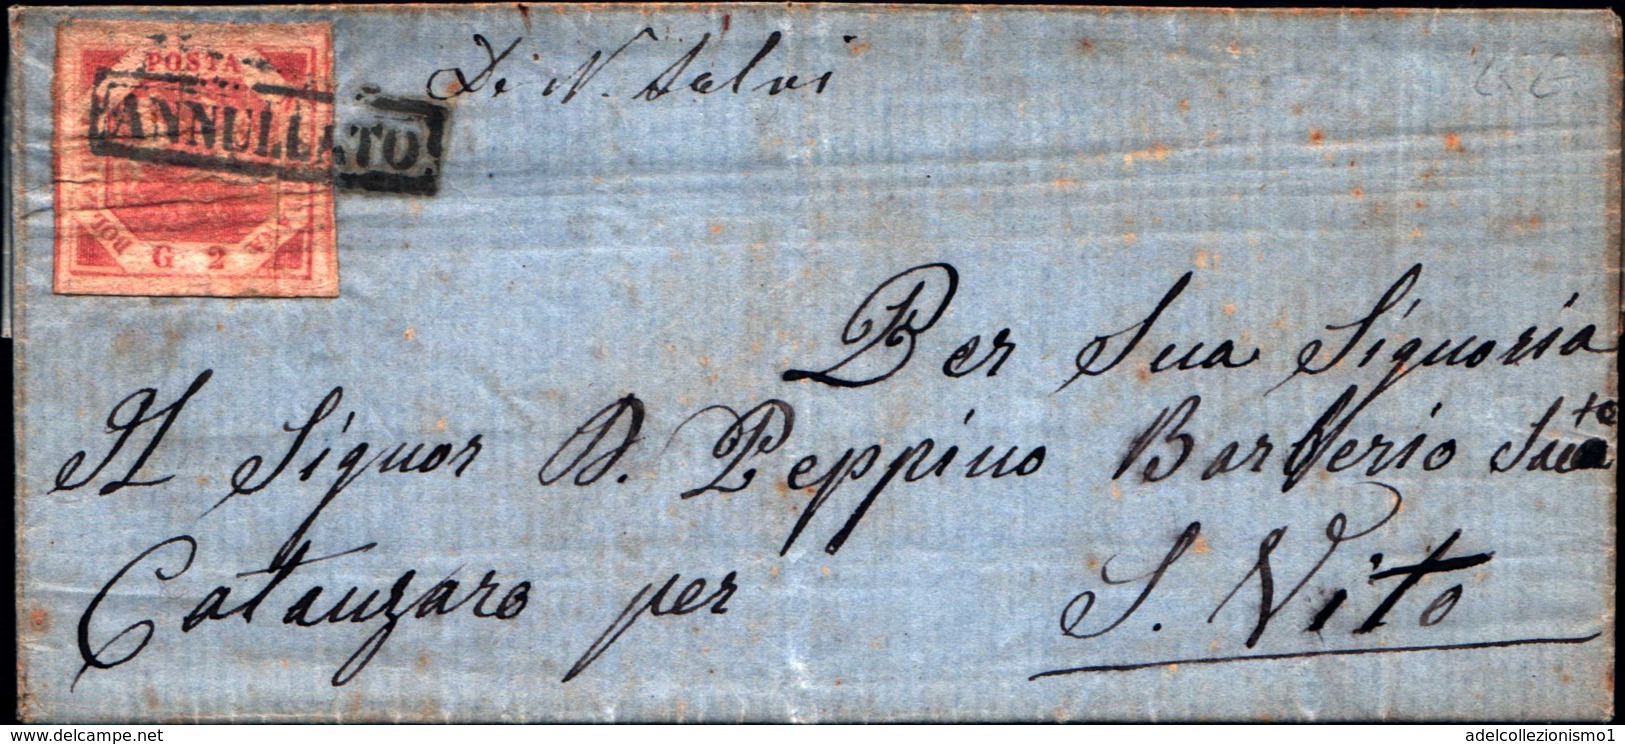 POSTA
ANNULLATO
BOL
G. 2
De N. Salvi
Per Sua Signoria
Il Signor D. Peppino Barberio
Catanzaro per S. Vito
delcampe.net
adelcollezionismo1